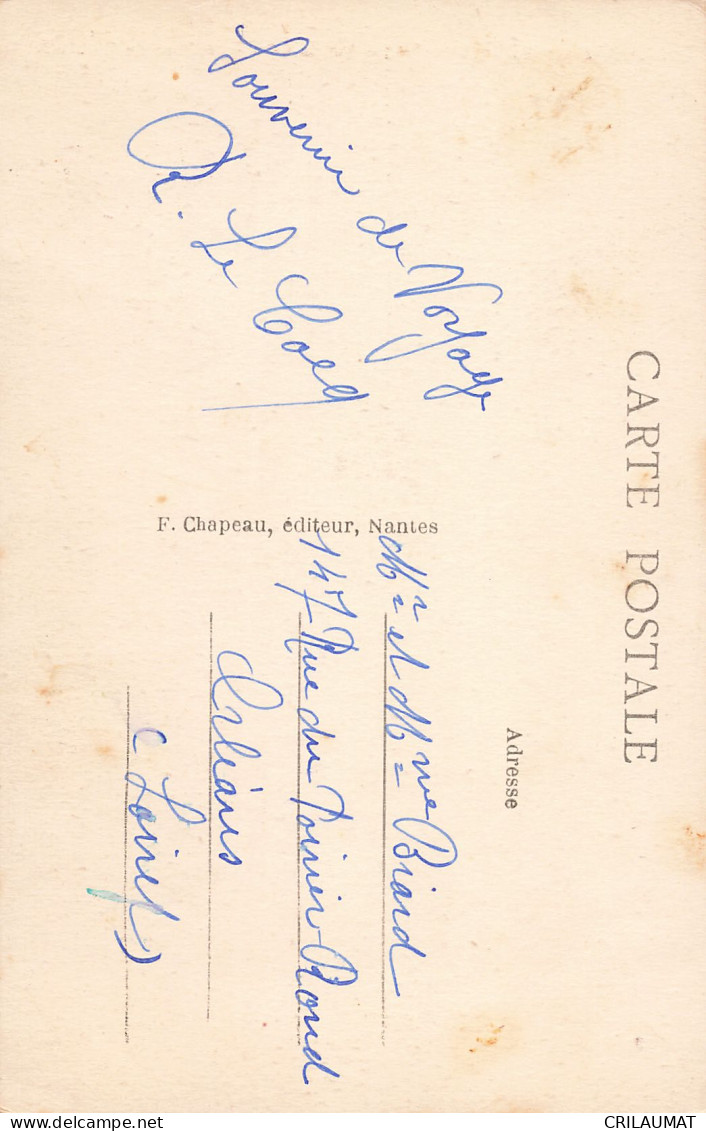 CARTE POSTALE
Souvenir de Voyage
R. Le Coeq
F. Chapeau, éditeur, Nantes
Adresse
Mr et Mme Biard
147 Rue du Poirier-Rond
Orléans
(Loiret)
CRILAUMAT